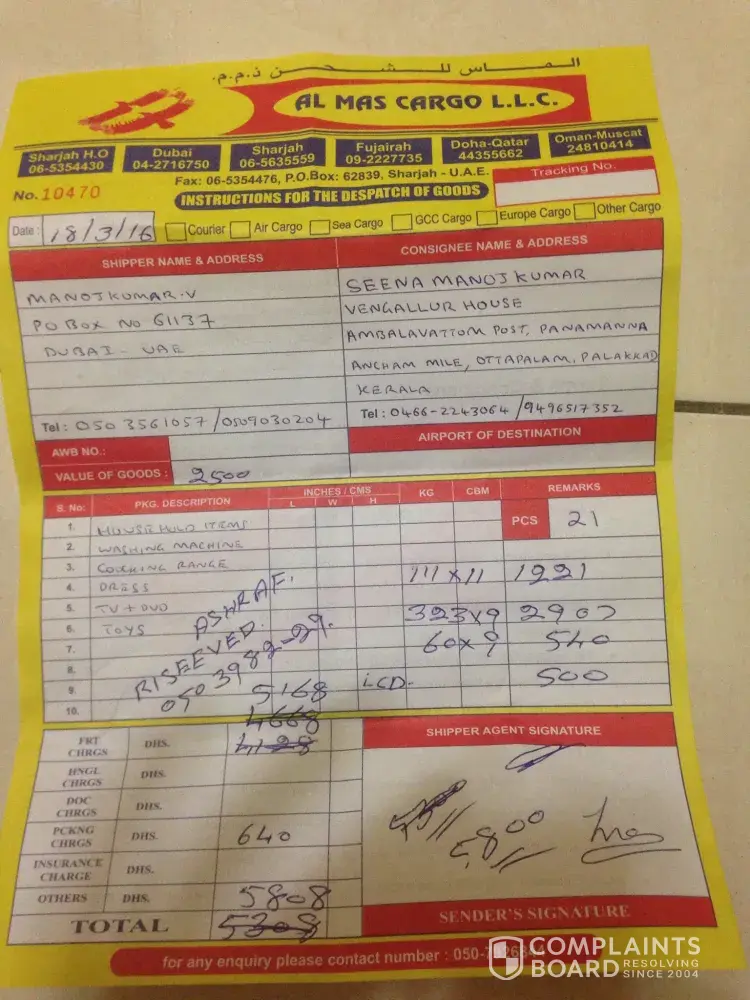 الـمـــاس للــشــحــن ذ.م.م.
AL MAS CARGO L.L.C.
Sharjah H.O 06-5354430
Dubai 04-2716750
Sharjah 06-5635559
Fujairah 09-2227735
Doha-Qatar 44355662
Oman-Muscat 24810414
Fax: 06-5354476, P.O.Box: 62839, Sharjah - U.A.E.
Tracking No.
No. 10470
INSTRUCTIONS FOR THE DESPATCH OF GOODS
Date: 18/3/16 Courier Air Cargo Sea Cargo GCC Cargo Europe Cargo Other Cargo
SHIPPER NAME & ADDRESS
MANOJKUMAR.V
PO BOX NO 61137
DUBAI - UAE
Tel: 050 3561057 /0509030204
CONSIGNEE NAME & ADDRESS
SEENA MANOJ KUMAR
VENGALLUR HOUSE
AMBALAVATTOM POST, PANAMANNA
ANCHAM MILE, OTTAPALAM, PALAKKAD
KERALA
Tel: 0466-2243064 /9496517352
AWB NO.:
AIRPORT OF DESTINATION
VALUE OF GOODS: 2500
S. No: PKG. DESCRIPTION INCHES / CMS L W H KG CBM REMARKS
1. HOUSE HOLD ITEMS PCS 21
2. WASHING MACHINE
3. COOKING RANGE
4. DRESS 111 x 11 1221
5. TV + DVD
6. TOYS 323x9 2907
7. 60x9 540
8.
9. 5168 LCD- 500
10. 4668
ASHRAF.
RISEEVED.
050 3982-29.
FRT CHRGS DHS. 4128
HNGL CHRGS DHS.
DOC CHRGS DHS.
PCKNG CHRGS DHS. 640
INSURANCE CHARGE DHS.
OTHERS DHS. 5808
TOTAL 5308
SHIPPER AGENT SIGNATURE
5800
SENDER'S SIGNATURE
for any enquiry please contact number : 050-7
COMPLAINTS
BOARD RESOLVING SINCE 2004